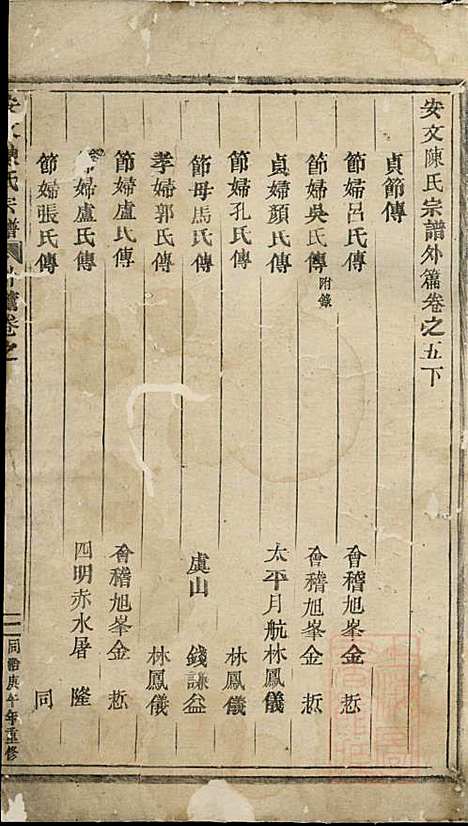 安文陳氏宗譜外篇卷之五下
貞節傳
節婦呂氏傳 會稽旭峯金
節婦吳氏傳 附錄 會稽旭峯金
貞婦顏氏傳 太平月航林鳳儀
節婦孔氏傳 林鳳儀
節母馬氏傳 虞山 錢謙益
孝婦郭氏傳 林鳳儀
節婦盧氏傳 會稽旭峯金
節婦盧氏傳 四明赤水屠 隆
節婦張氏傳 同
安文陳氏宗譜 外篇卷之
一 同治庚午年重修